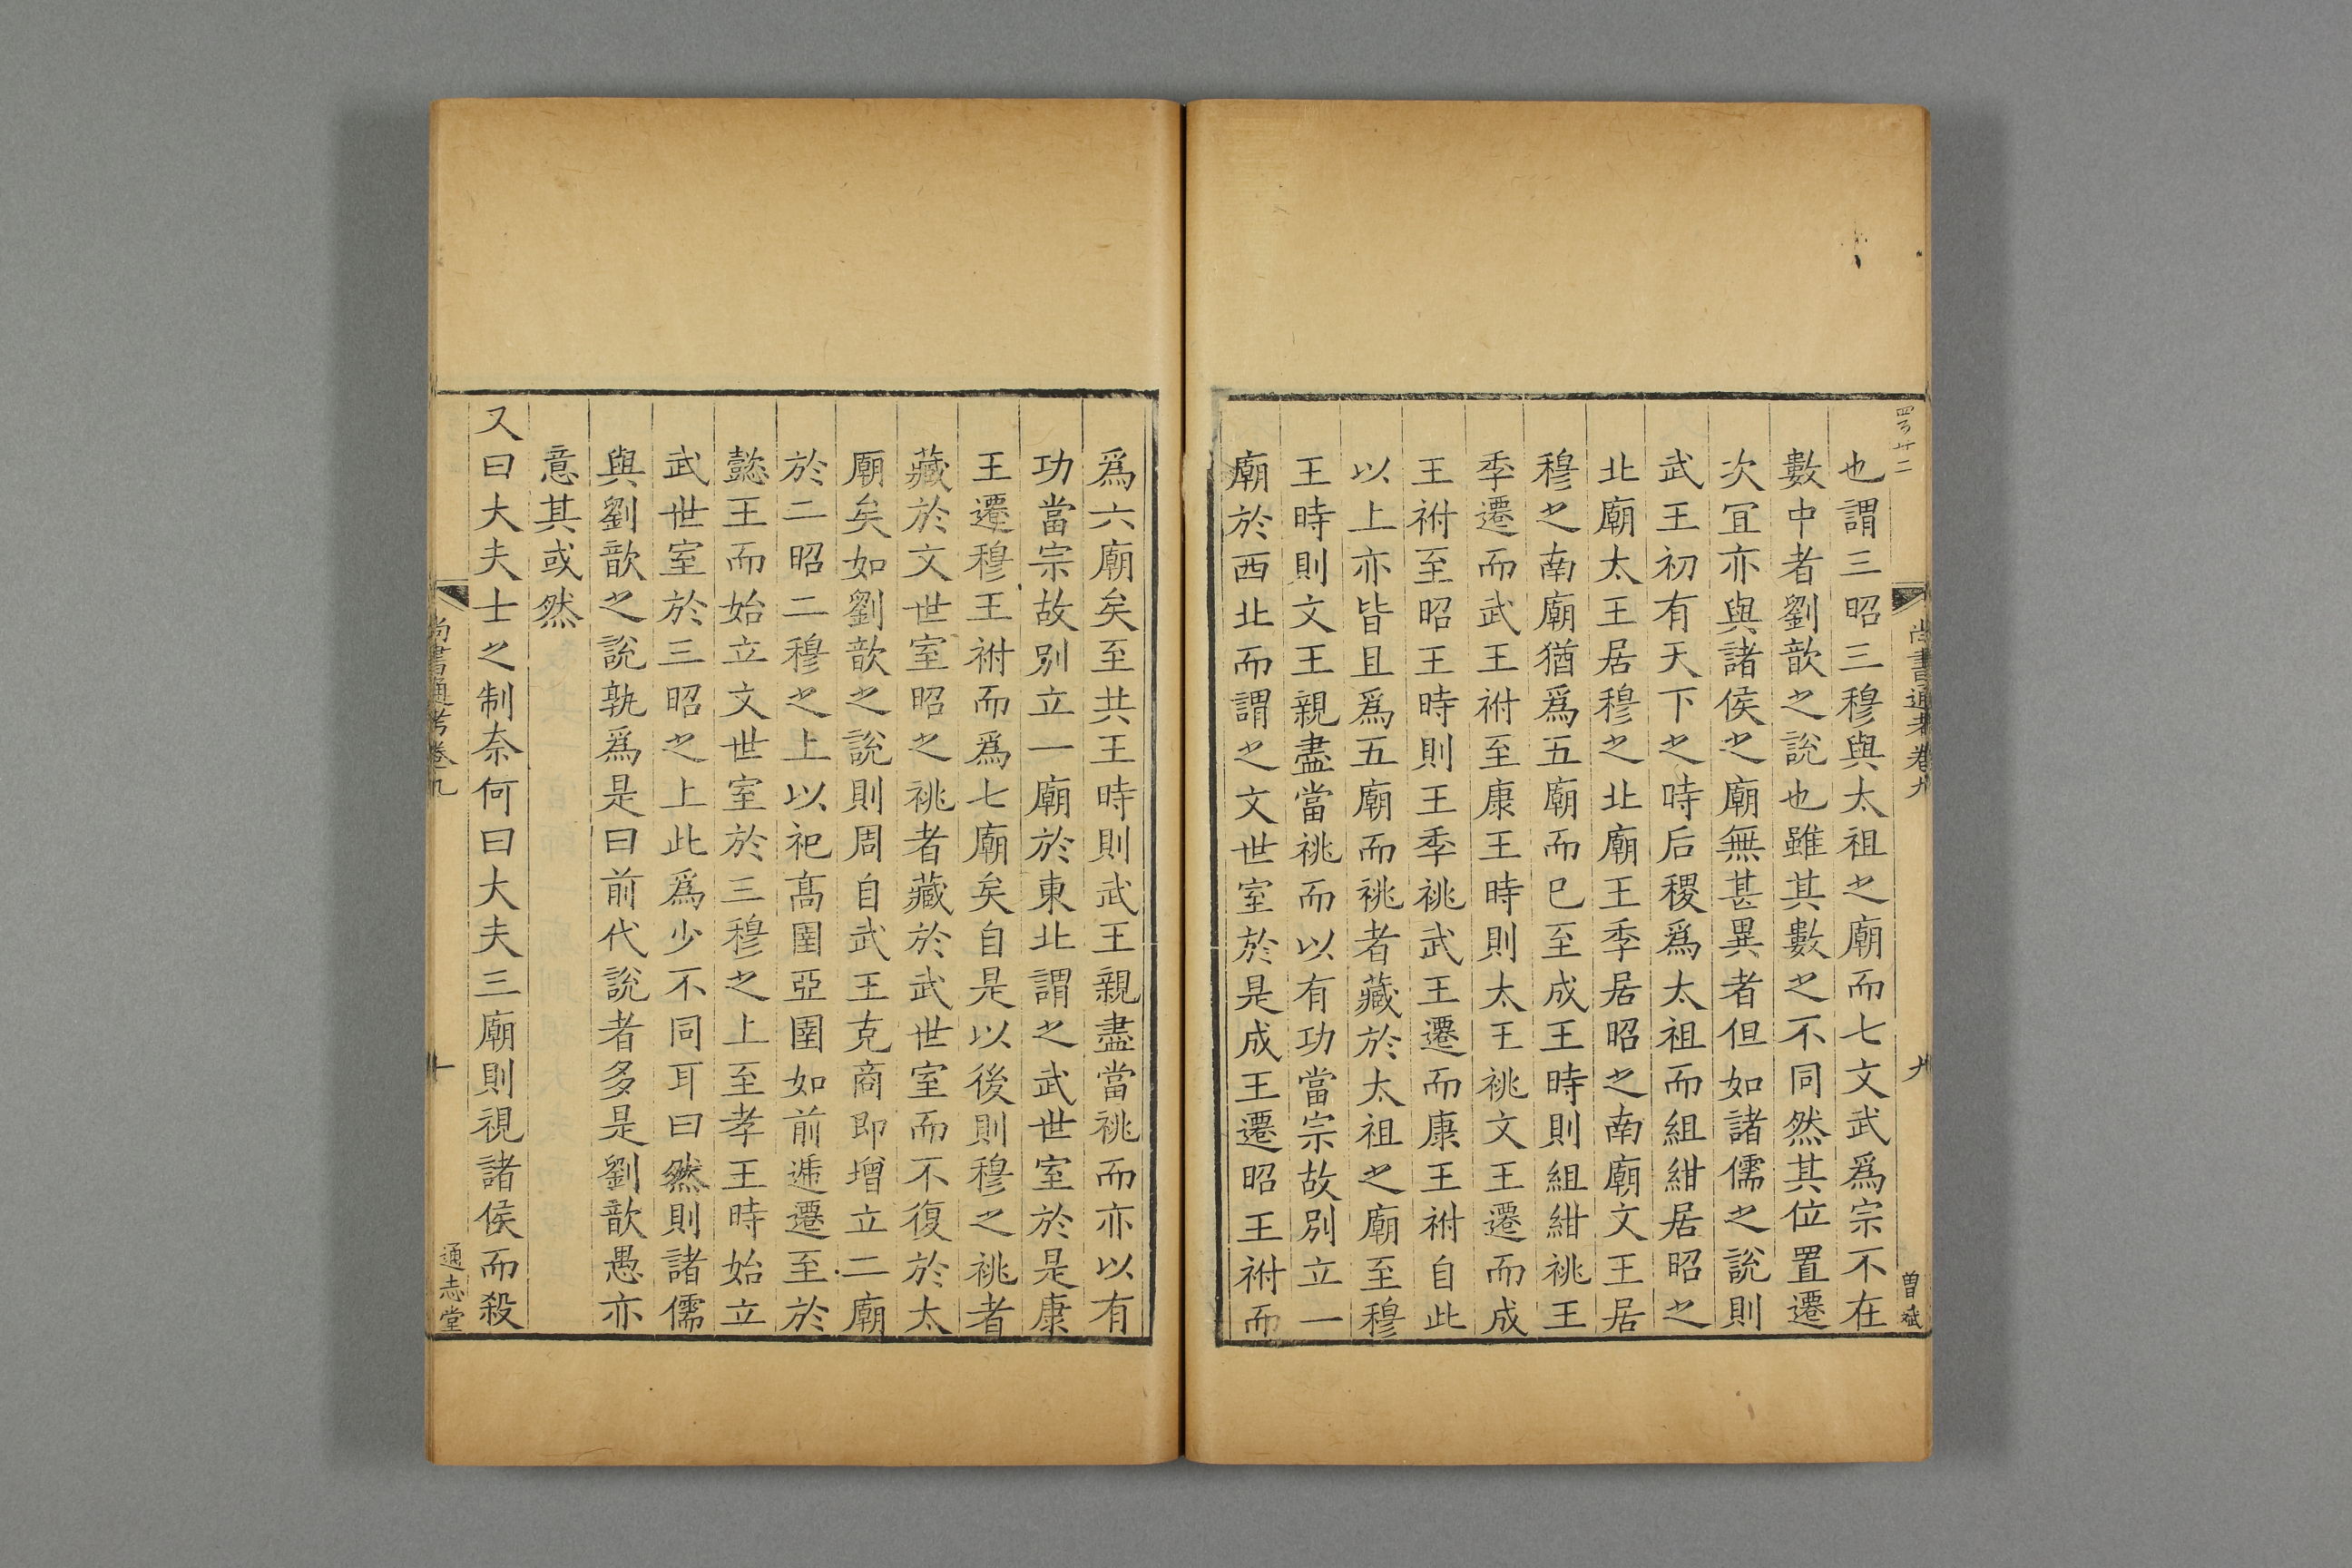 四百廿二
尚書通考卷九
九
曾斌
也謂三昭三穆與太祖之廟而七文武爲宗不在
數中者劉歆之説也雖其數之不同然其位置遷
次冝亦與諸侯之廟無甚異者但如諸儒之說則
武王初有天下之時后稷爲太祖而組紺居昭之
北廟太王居穆之北廟王季居昭之南廟文王居
穆之南廟猶爲五廟而已至成王時則組紺祧王
季遷而武王祔至康王時則太王祧文王遷而成
王祔至昭王時則王季祧武王遷而康王祔自此
以上亦皆且爲五廟而祧者藏於太祖之廟至穆
王時則文王親盡當祧而以有功當宗故別立一
廟於西北而謂之文世室於是成王遷昭王祔而
爲六廟矣至共王時則武王親盡當祧而亦以有
功當宗故別立一廟於東北謂之武世室於是康
王遷穆王祔而爲七廟矣自是以後則穆之祧者
藏於文世室昭之祧者藏於武世室而不復於太
廟矣如劉歆之説則周自武王克商即增立二廟
於二昭二穆之上以祀髙圉亞圉如前遞遷至於
懿王而始立文世室於三穆之上至孝王時始立
武世室於三昭之上此爲少不同耳曰然則諸儒
與劉歆之說孰爲是曰前代說者多是劉歆愚亦
意其或然
又曰大夫士之制奈何曰大夫三廟則視諸侯而殺
尚書通考卷九
十
通志堂